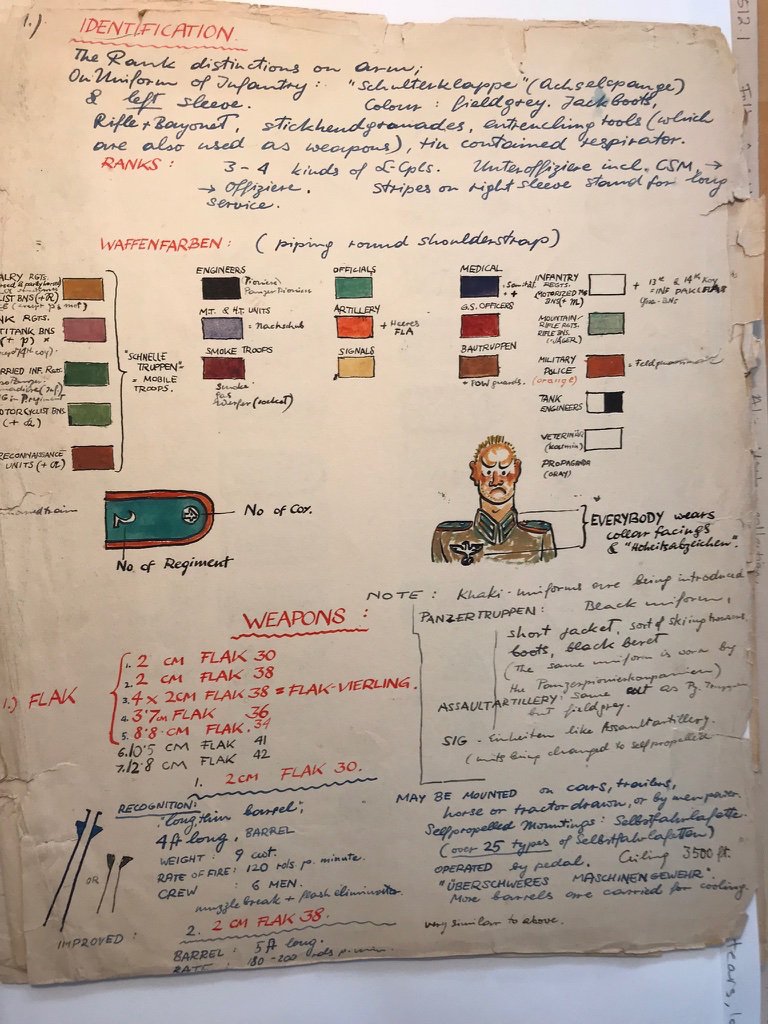 1.)
IDENTIFICATION.
The Rank distinctions on arm;
On Uniform of Infantry: "Schulterklappe" (Achselspange)
& left sleeve. Colour: fieldgrey. Jackboots,
Rifle + Bayonet, stickhendgranades, entrenching tools (which
are also used as weapons), tin contained respirator.
RANKS: 3-4 kinds of L-Cpls. Unteroffiziere incl. CSM, →
→ Offiziere. stripes on right sleeve stand for long
service.
WAFFENFARBEN: (piping round shoulderstrap)
ALRY RGTS.
LIST BNS (+R)
NK RGTS.
TITANK BNS
(+ p) x
RRIED INF. RGTS.
OTORCYCLIST BNS.
RECONNAISSANCE
UNITS (+ a)
"SCHNELLE
TRUPPEN"
= MOBILE
TROOPS.
ENGINEERS
Pioniere
Panzer Pioniere
M.T. & H.T. UNITS
= Nachschub
SMOKE TROOPS
Smoke
Gas
Werfer (rocket)
OFFICIALS
ARTILLERY
+ Heeres
FLA
SIGNALS
MEDICAL
G.S. OFFICERS
BAUTRUPPEN
+ POW guards.
INFANTRY
REGTS.
MOTORIZED MG
BNS (+ M)
+ 13th & 14th Koy
= INF PAK FLAK
MOUNTAIN/
RIFLE RGTS.
RIFLE BNS.
(=JÄGER)
MILITARY
POLICE
(orange)
TANK
ENGINEERS
VETERINÄR
(karmin)
PROPAGANDA
(GRAY)
No of Coy.
No. of Regiment
EVERYBODY wears
collar facings
& "Hoheitsabzeichen".
NOTE: Khaki-uniforms are being introduced
PANZERTRUPPEN: Black uniform,
short jacket, sort of skiing trousers,
boots, black beret
(The same uniform is worn by
the Panzerpionierkompanien)
ASSAULTARTILLERY: same cut as Pz. Truppen
but fieldgrey.
SIG - Einheiten like Assaultartillery.
(units being changed to selfpropelled
WEAPONS:
1.) FLAK
1. 2 CM FLAK 30
2. 2 CM FLAK 38
3. 4 x 2CM FLAK 38 = FLAK-VIERLING.
4. 3'7 cm FLAK 36
5. 8'8 CM FLAK. 34
6. 10'5 CM FLAK 41
7. 12'8 CM FLAK 42
1. 2 CM FLAK 30.
RECOGNITION:
"long thin barrel",
4 ft long, BARREL
WEIGHT: 9 cwt.
RATE OF FIRE: 120 rds p. minute.
CREW: 6 MEN.
muzzle break + flash eliminator.
OR
MAY BE MOUNTED on cars, trailers,
horse or tractor drawn, or by men power.
Selfpropelled Mountings: Selbstfahrlafette.
(over 25 types of Selbstfahrlafetten)
OPERATED by pedal. Ceiling 3500 ft.
"ÜBERSCHWERES MASCHINENGEWEHR".
More barrels are carried for cooling.
2. 2 CM FLAK 38.
very similar to above.
IMPROVED:
BARREL: 5 ft long.
RATE 180-200 rds p. min.